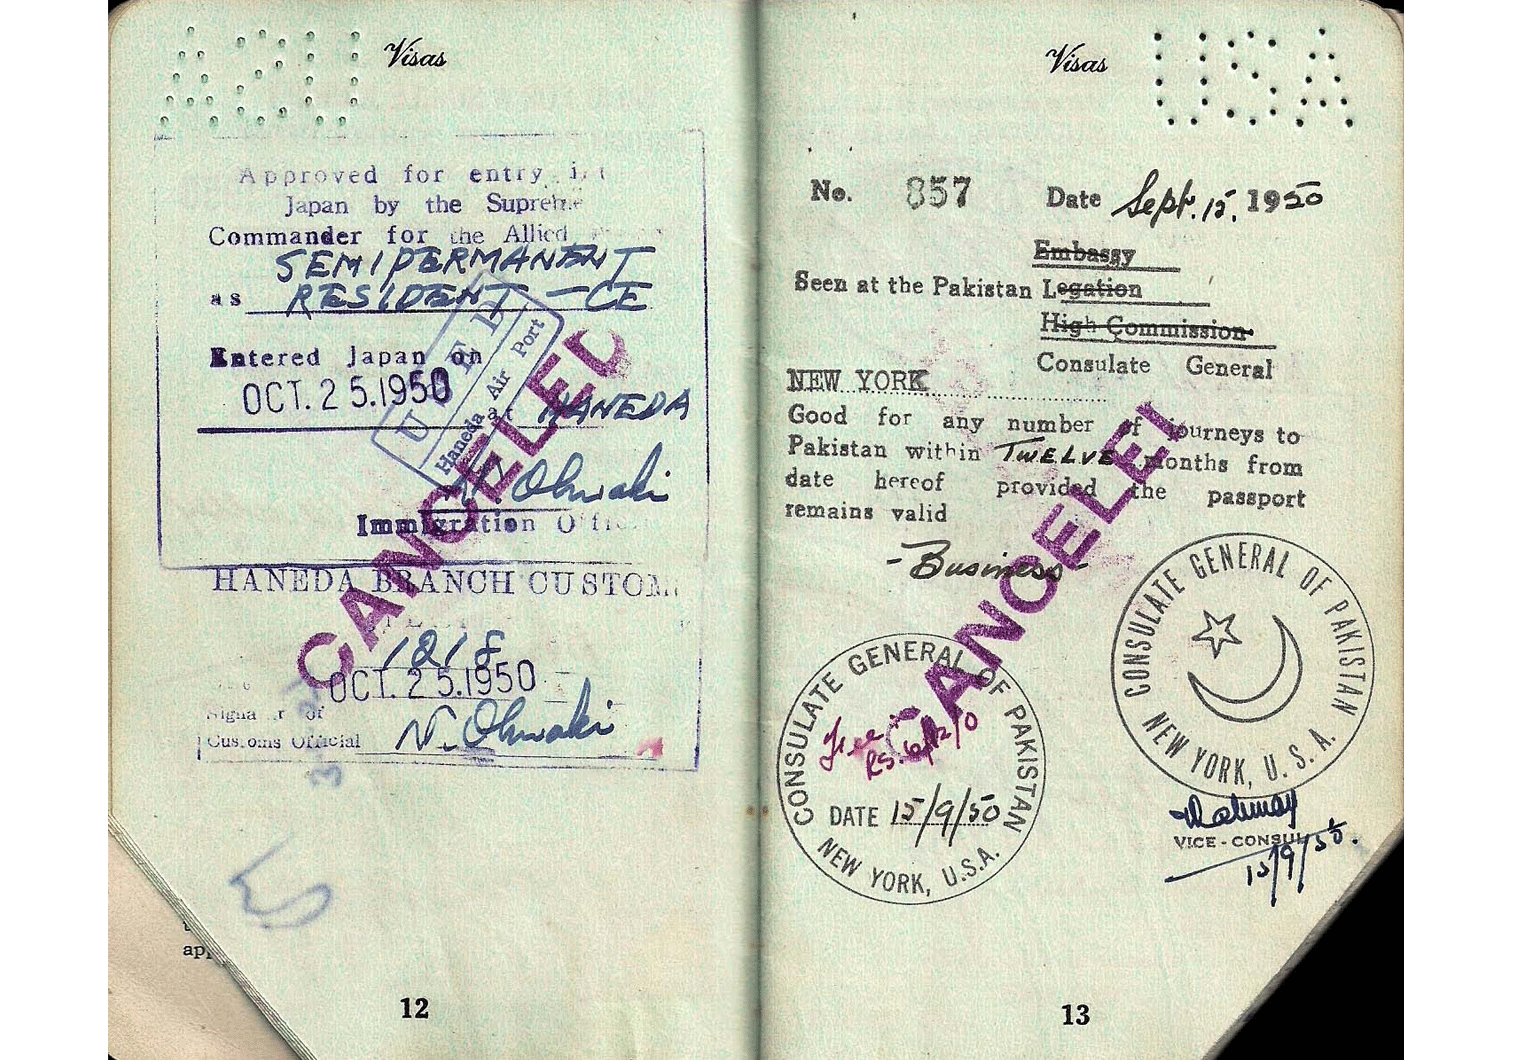 Visas
USA
Approved for entry
Japan by the Supreme
Commander for the Allied
SEMIPERMANENT
as RESIDENT - CE
Entered Japan on
OCT. 25.1950
at HANEDA
USED
Haneda Air Port
N. Ohwaki
Immigration
HANEDA BRANCH CUSTOM
1218
OCT. 25.1950
Signa r of
Customs Official
N. Ohwaki
CANCELED
app
12
Visas
USA
No. 857 Date Sept. 15. 1950
Embassy
Seen at the Pakistan Legation
High Commission
Consulate General
NEW YORK
Good for any number of journeys to
Pakistan within TWELVE months from
date hereof provided the passport
remains valid
- Business -
CANCELE
CONSULATE GENERAL OF PAKISTAN
NEW YORK, U.S.A.
CONSULATE GENERAL OF PAKISTAN
Free
DATE 15/9/50
NEW YORK, U.S.A.
VICE-CONSUL
15/9/50.
13